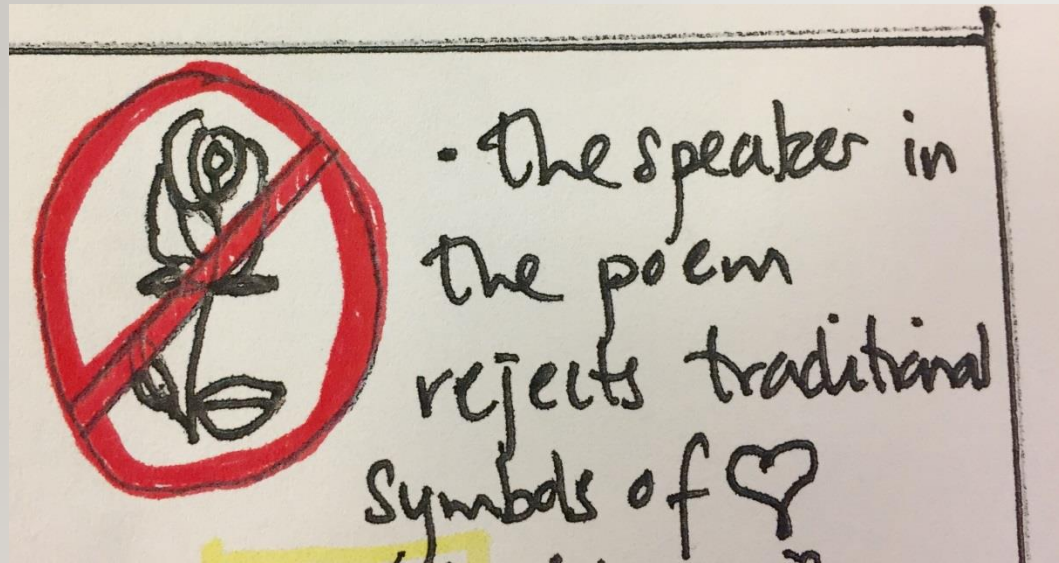 · The speaker in
the poem
rejects traditional
symbols of ♡